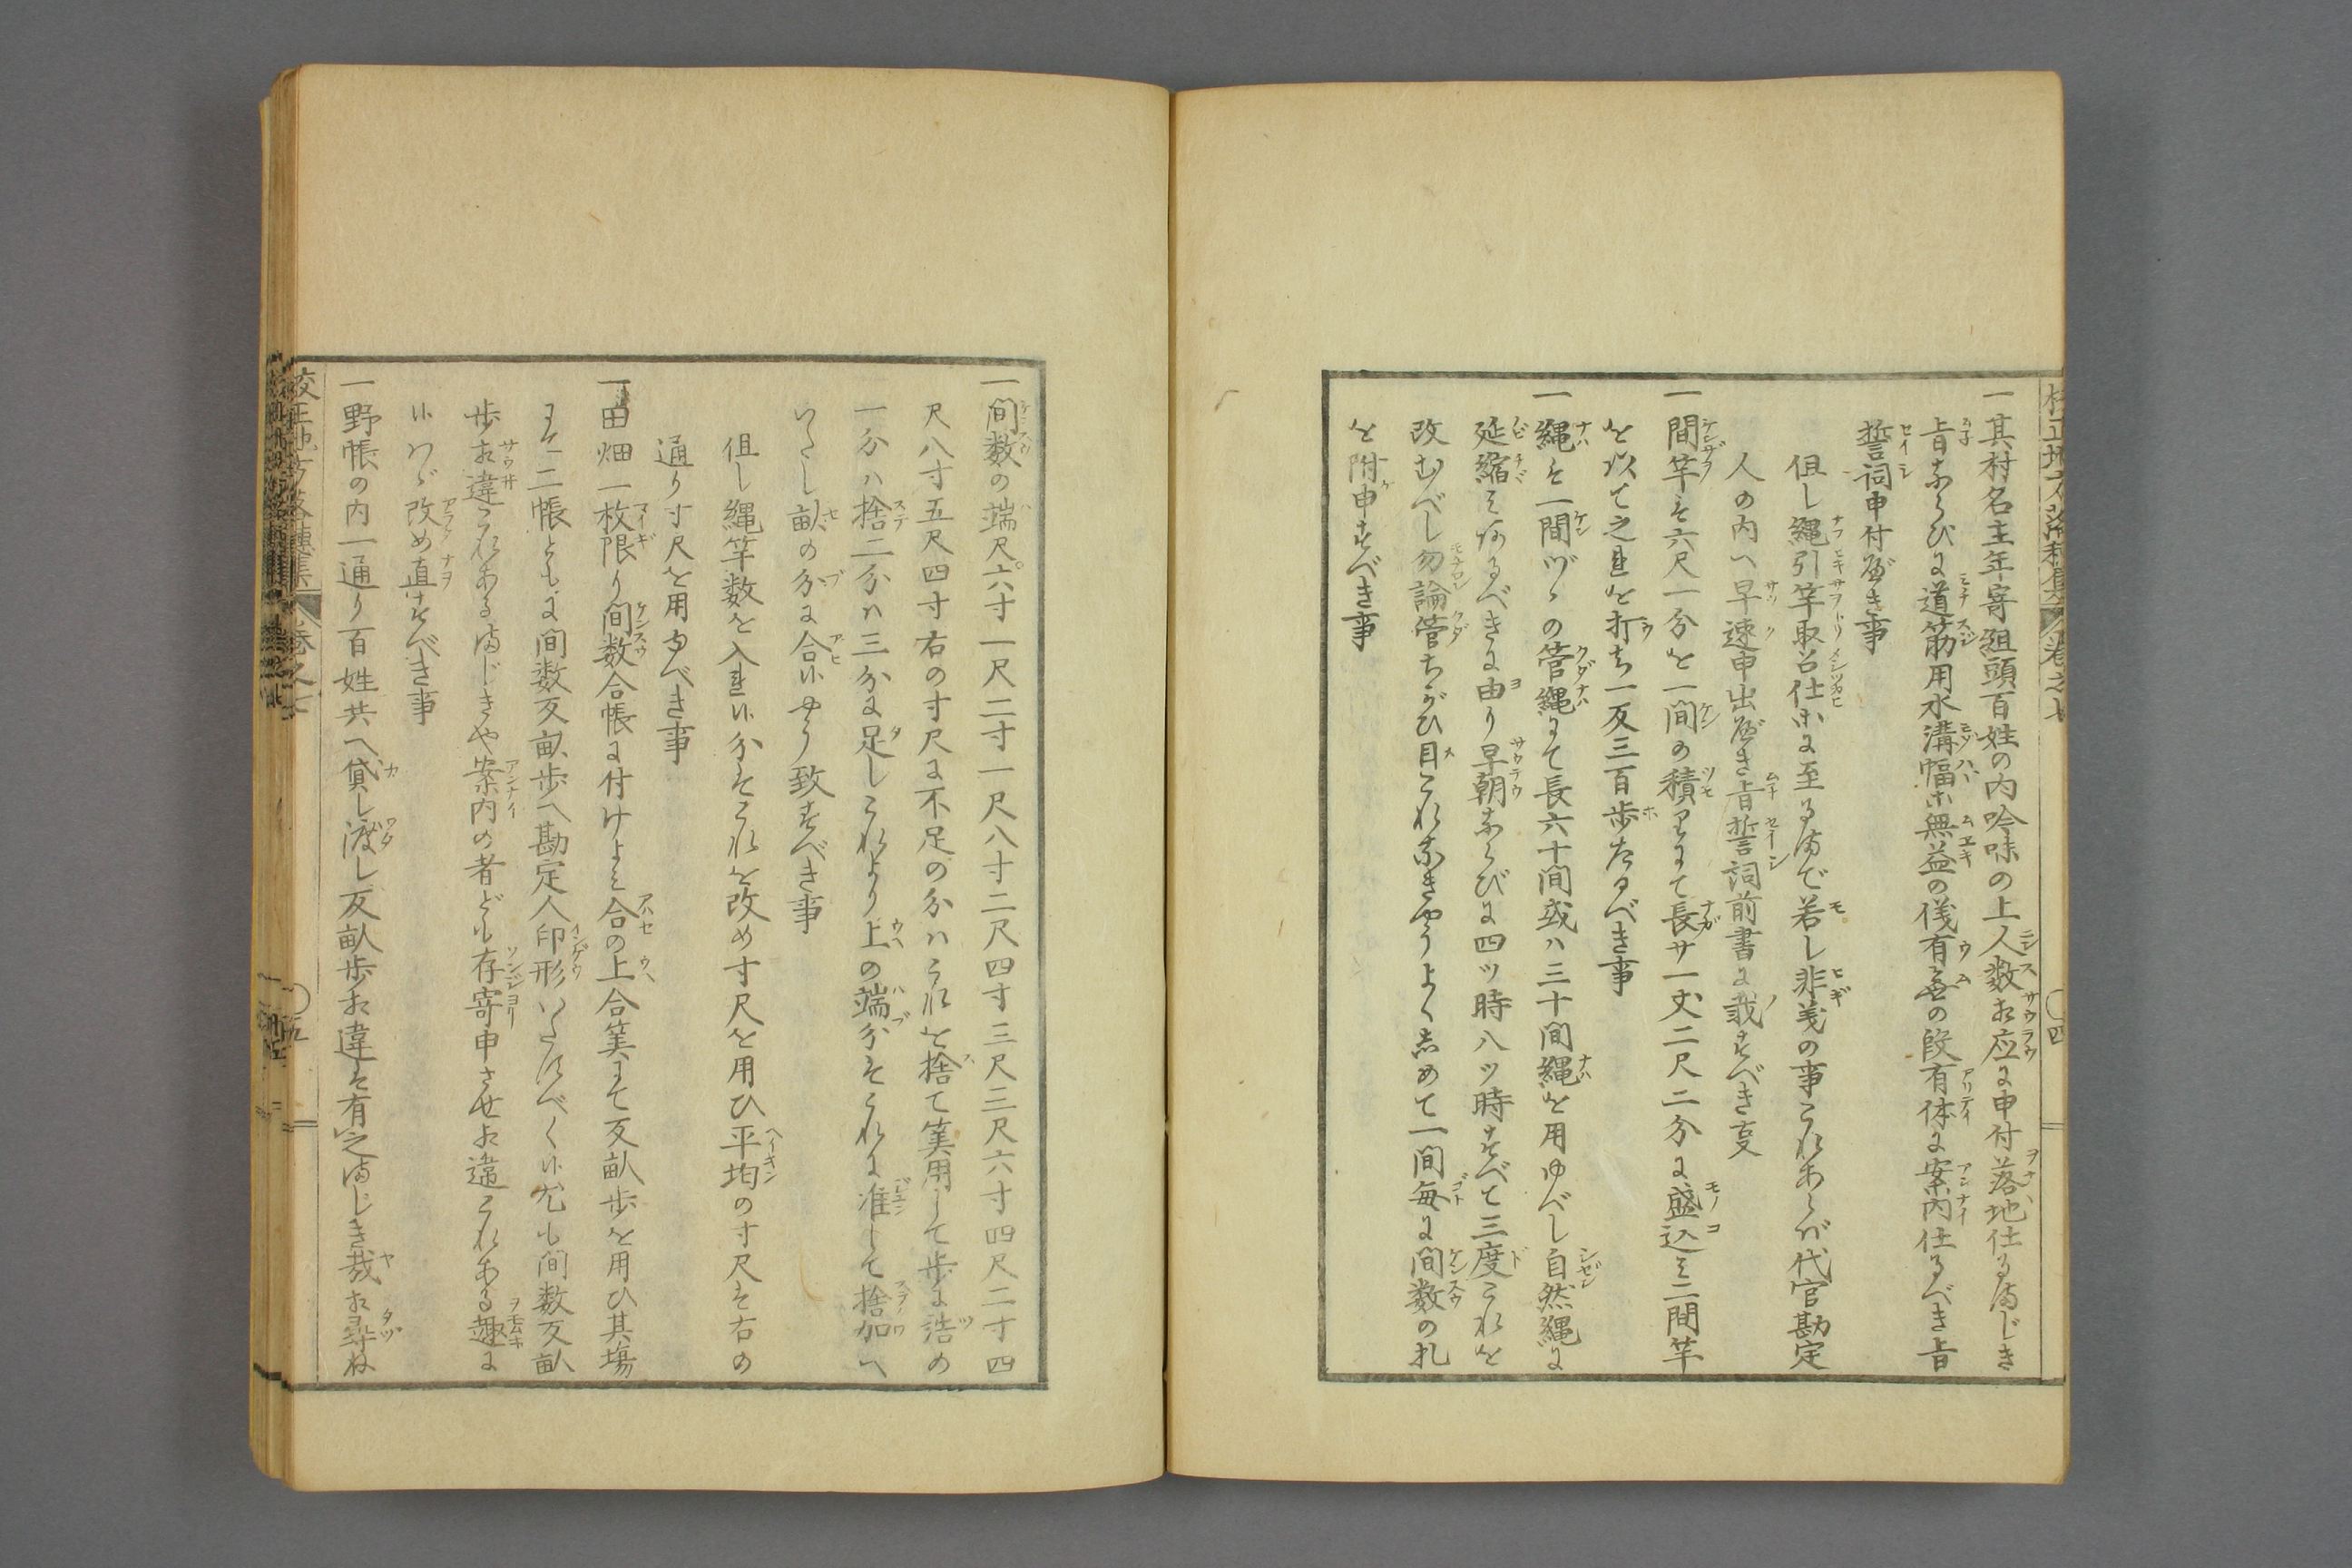 一其村名主年寄組頭百姓の内吟味の上人数相応に申付落地仕るまじき
旨ならびに道筋用水溝幅等無益の儀有無の段有体に案内仕るべき旨
誓詞申付べき事
但し縄引竿取召仕等に至るまで若し非義の事これあらバ代官勘定
人の内へ早速申出べき旨誓詞前書に載すべき事
一間竿は六尺一分を一間の積りにて長サ一丈二尺二分に盛込み二間竿
を以て之れを打ち一反三百歩たるべき事
一縄は一間づゝの管縄にて長六十間或ハ三十間縄を用ゆべし自然縄に
延縮みあるべきに由り早朝ならびに四ツ時八ツ時すべて三度これを
改むべし勿論管ちがひ目これなきやうよくしめて一間毎に間数の札
を附申すべき事
一間数の端尺六寸一尺二寸一尺八寸二尺四寸三尺三尺六寸四尺二寸四
尺八寸五尺四寸右の寸尺に不足の分ハこれを捨て算用して歩に詰め
一分ハ捨二分ハ三分に足しこれより上の端分はこれに准じて捨加へ
いたし畝の分に合ハやう致すべき事
但し縄竿数を入れ候分はこれを改め寸尺を用ひ平均の寸尺は右の
通り寸尺を用ゆべき事
一田畑一枚限り間数合帳に付けよみ合の上合算にて反畝歩を用ひ其場
にて二帳ともに間数反畝歩へ勘定人印形いたすべく候尤も間数反畝
歩相違これあるまじきや案内の者ども存寄申させ相違これある趣に
候ハゞ改め直すべき事
一野帳の内一通り百姓共へ貸し渡し反畝歩相違は有之まじき哉相尋ね
校正地方落穂集 巻之七 ○五